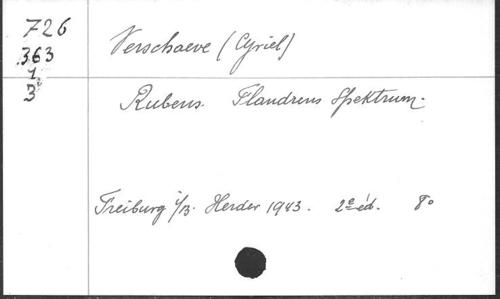 726
.363
1.
3
Verschaeve (Cyriel)
Rubens. Flandrens Spektrum.
Freiburg i/B. Herder 1943. 2e éd. 8°